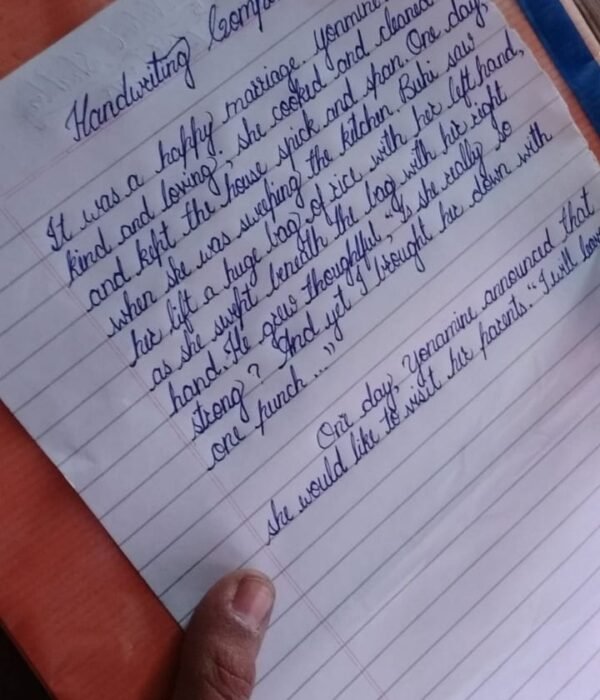 Handwriting Comp
It was a happy marriage. Yonmine
kind and loving, she cooked and cleaned
and kept the house spick and span. One day,
when she was sweeping the kitchen Buhi saw
her lift a huge bag of rice with her left hand,
as she swept beneath the bag with her right
hand. He grew thoughtful. "Is she really so
strong? And yet I brought her down with
one punch ..."
One day, Yonamine announced that
she would like to visit her parents. "I will leav